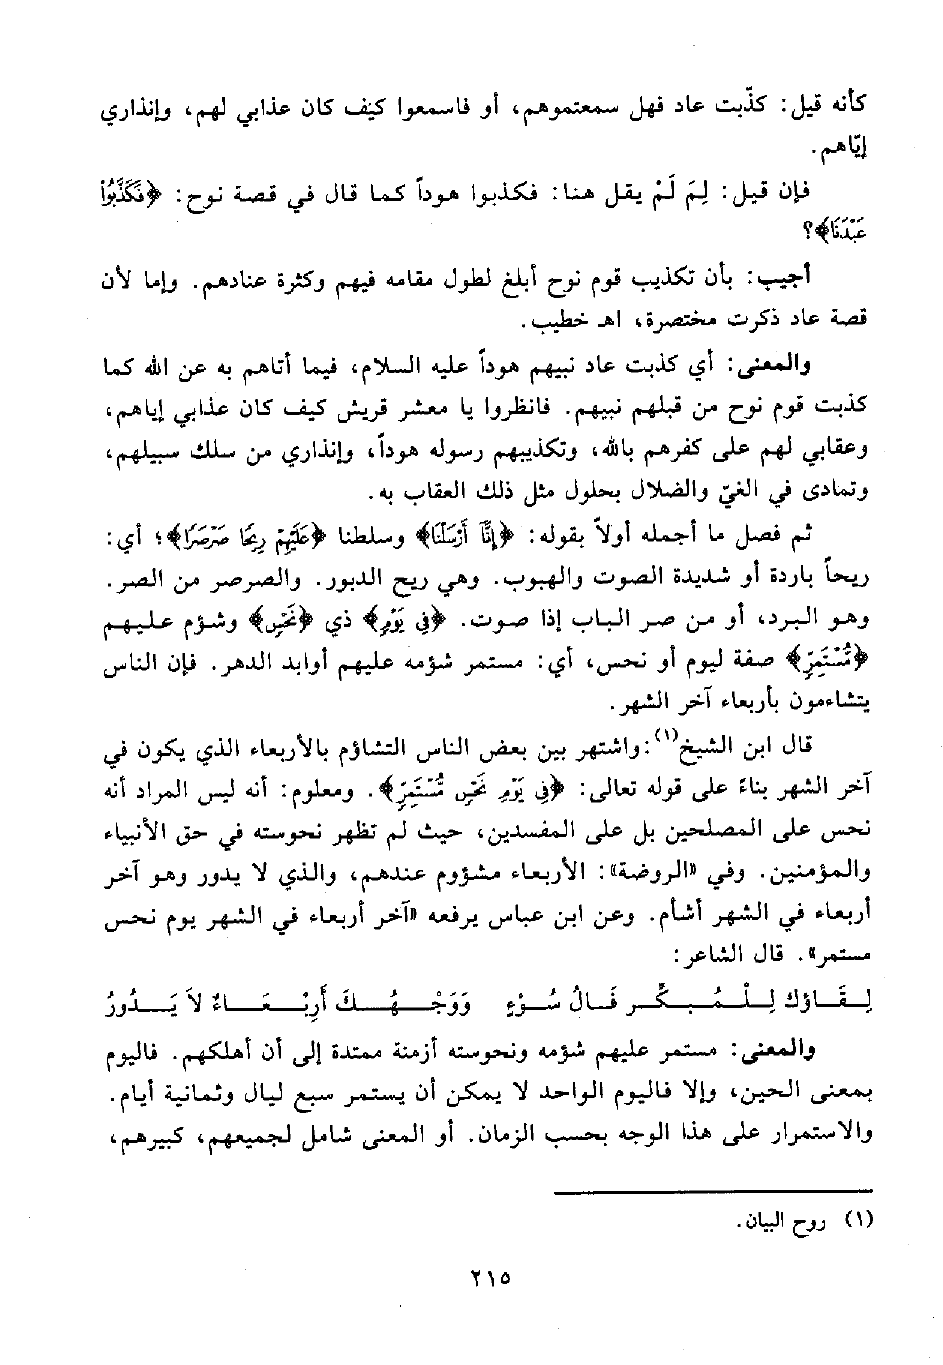 كأنه قيل: كذّبت عاد فهل سمعتموهم، أو فاسمعوا كيف كان عذابي لهم، وإنذاري
إيّاهم.
فإن قيل: لِمَ لَمْ يقل هنا: فكذبوا هوداً كما قال في قصة نوح: ﴿فَكَذَّبُوا۟
عَبْدَنَا﴾؟
أجيب: بأن تكذيب قوم نوح أبلغ لطول مقامه فيهم وكثرة عنادهم. وإما لأن
قصة عاد ذكرت مختصرة، اهـ خطيب.
والمعنى: أي كذبت عاد نبيهم هوداً عليه السلام، فيما أتاهم به عن الله كما
كذبت قوم نوح من قبلهم نبيهم. فانظروا يا معشر قريش كيف كان عذابي إياهم،
وعقابي لهم على كفرهم بالله، وتكذيبهم رسوله هوداً، وإنذاري من سلك سبيلهم،
وتمادى في الغيّ والضلال بحلول مثل ذلك العقاب به.
ثم فصل ما أجمله أولاً بقوله: ﴿إِنَّا أَرْسَلْنَا﴾ وسلطنا ﴿عَلَيْهِمْ رِيحًا صَرْصَرًا﴾؛ أي:
ريحاً باردة أو شديدة الصوت والهبوب. وهي ريح الدبور. والصرصر من الصر.
وهو البرد، أو من صر الباب إذا صوت. ﴿فِى يَوْمِ﴾ ذي ﴿نَحْسٍ﴾ وشؤم عليهم
﴿مُّسْتَمِرٍّ﴾ صفة ليوم أو نحس، أي: مستمر شؤمه عليهم أوابد الدهر. فإن الناس
يتشاءمون بأربعاء آخر الشهر.
قال ابن الشيخ(١): واشتهر بين بعض الناس التشاؤم بالأربعاء الذي يكون في
آخر الشهر بناءً على قوله تعالى: ﴿فِى يَوْمِ نَحْسٍ مُّسْتَمِرٍّ﴾. ومعلوم: أنه ليس المراد أنه
نحس على المصلحين بل على المفسدين، حيث لم تظهر نحوسته في حق الأنبياء
والمؤمنين. وفي «الروضة»: الأربعاء مشؤوم عندهم، والذي لا يدور وهو آخر
أربعاء في الشهر أشأم. وعن ابن عباس يرفعه «آخر أربعاء في الشهر يوم نحس
مستمر». قال الشاعر:
لِقَاؤُكَ لِلْمُبَكِّرِ فَالُ سُوْءٍ وَوَجْهُكَ أَرْبَعَاءُ لاَ يَدُوْرُ
والمعنى: مستمر عليهم شؤمه ونحوسته أزمنة ممتدة إلى أن أهلكهم. فاليوم
بمعنى الحين، وإلا فاليوم الواحد لا يمكن أن يستمر سبع ليال وثمانية أيام.
والاستمرار على هذا الوجه بحسب الزمان. أو المعنى شامل لجميعهم، كبيرهم،
(١) روح البيان.
٢١٥